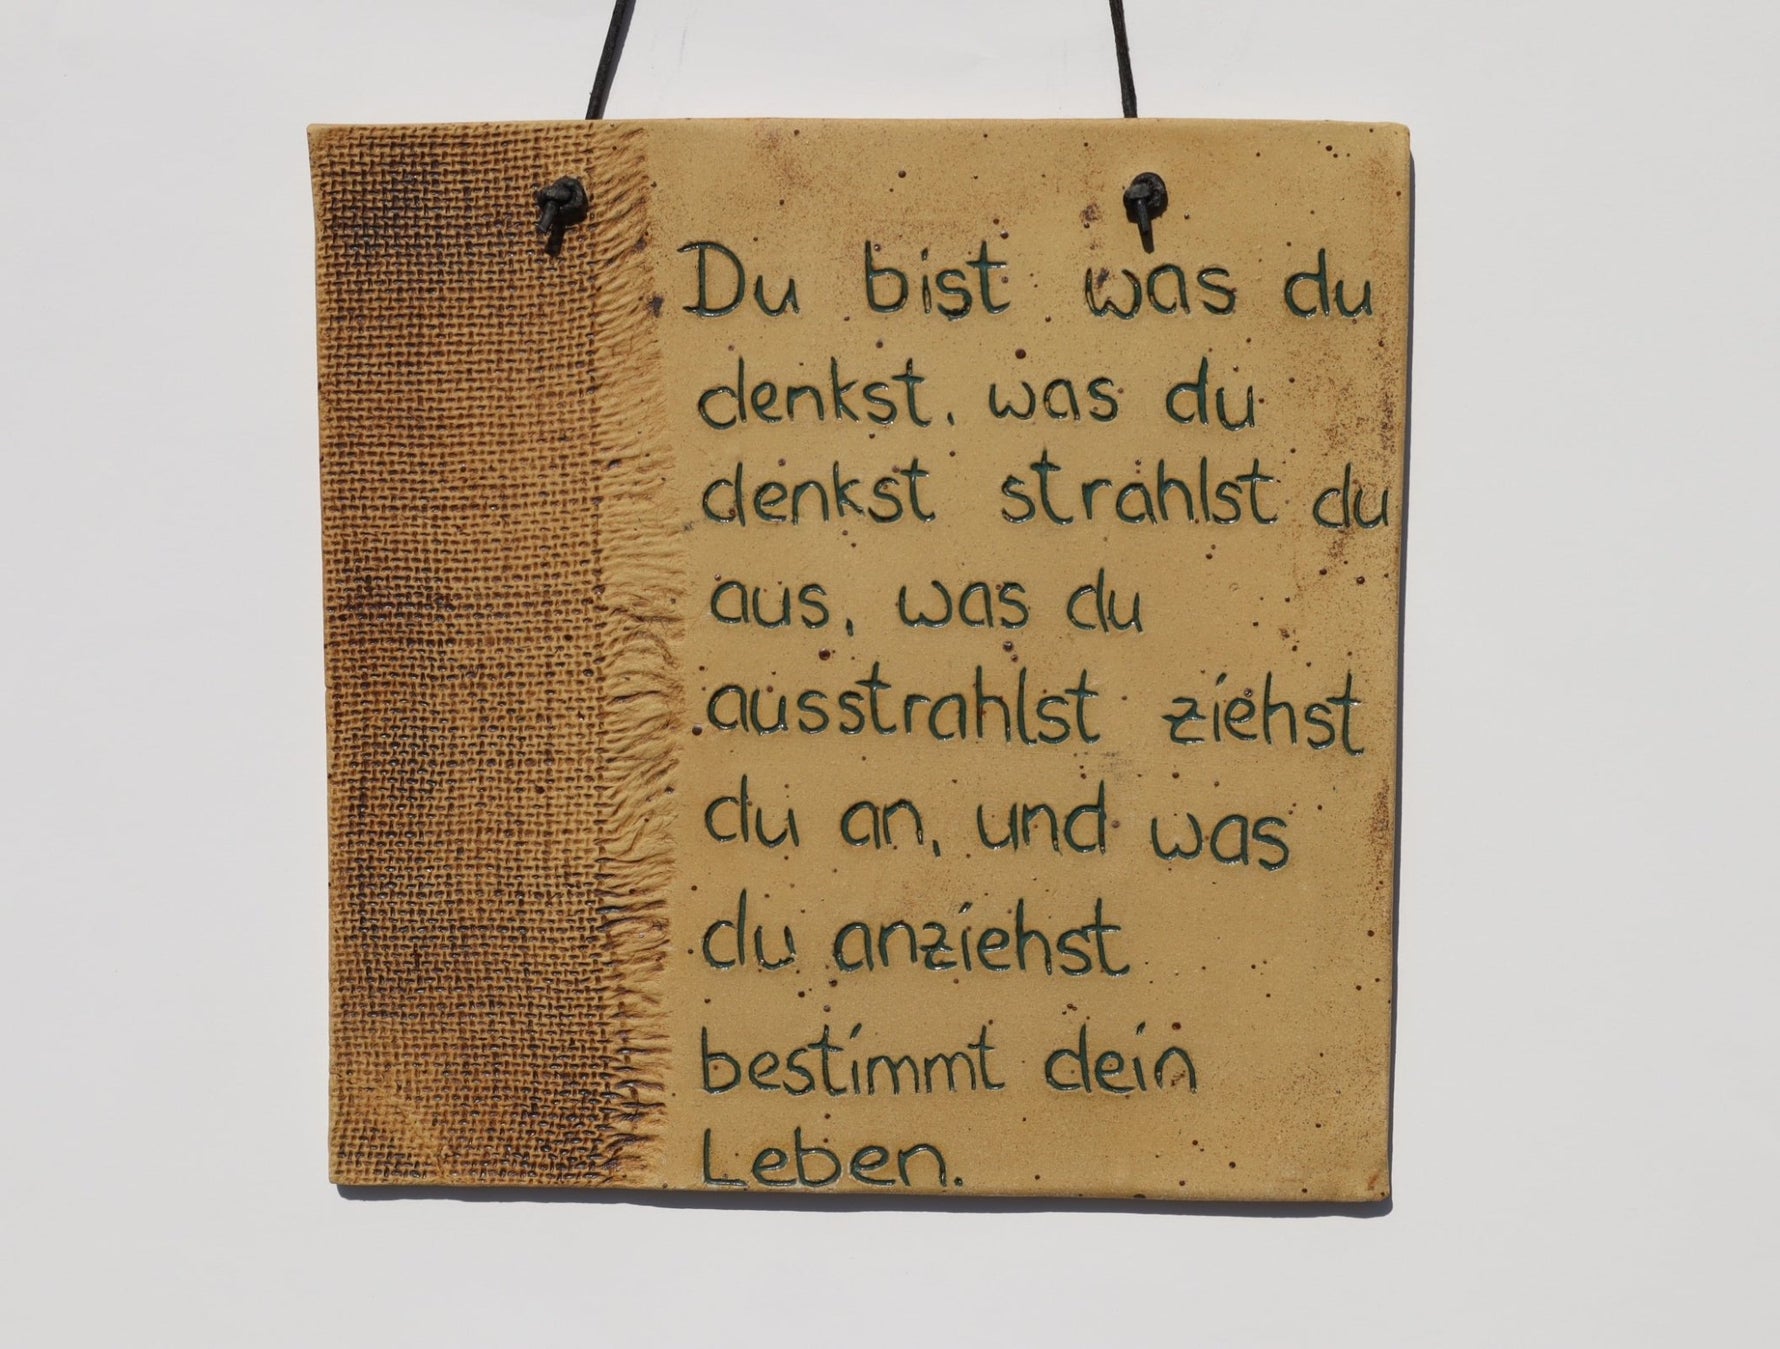 Du bist was du
denkst, was du
denkst strahlst du
aus, was du
ausstrahlst ziehst
du an, und was
du anziehst
bestimmt dein
Leben.